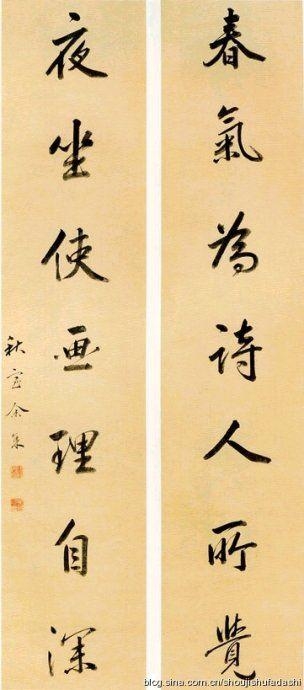 春氣為詩人所覺
夜坐使画理自深
秋室余集
blog.sina.com.cn/shoujishufadashi